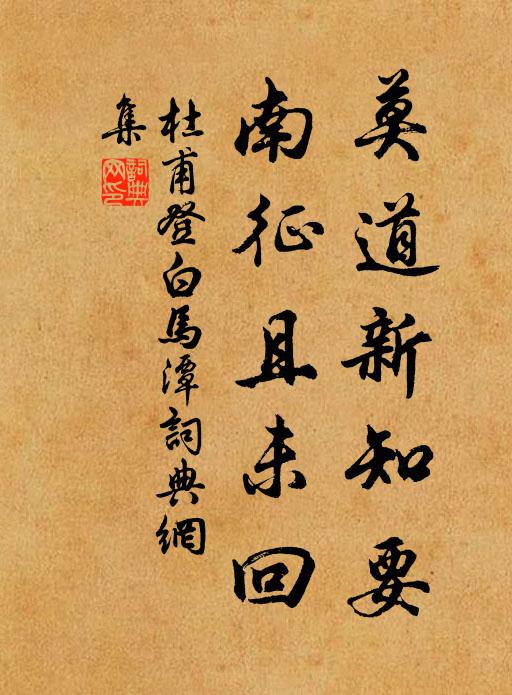 莫道新知要
南征且未回
杜甫登白馬潭詞典網
集
詞典
网印